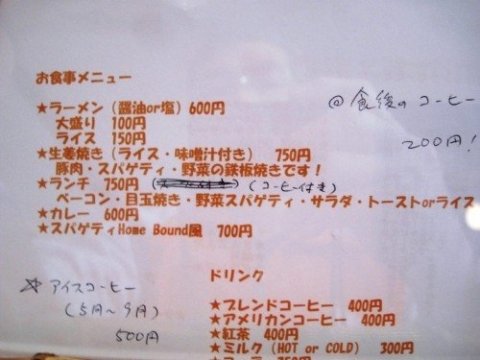 お食事メニュー
★ラーメン（醤油or塩）600円
大盛り 100円
ライス 150円
★生姜焼き（ライス・味噌汁付き） 750円
豚肉・スパゲティ・野菜の鉄板焼きです！
★ランチ 750円 (コーヒー付き)
ベーコン・目玉焼き・野菜スパゲティ・サラダ・トーストorライス
★カレー 600円
★スパゲティHome Bound風 700円
@ 食後のコーヒー
200円!
☆ アイスコーヒー
(5月～9月)
500円
ドリンク
★ブレンドコーヒー 400円
★アメリカンコーヒー 400円
★紅茶 400円
★ミルク(HOT or COLD) 300円